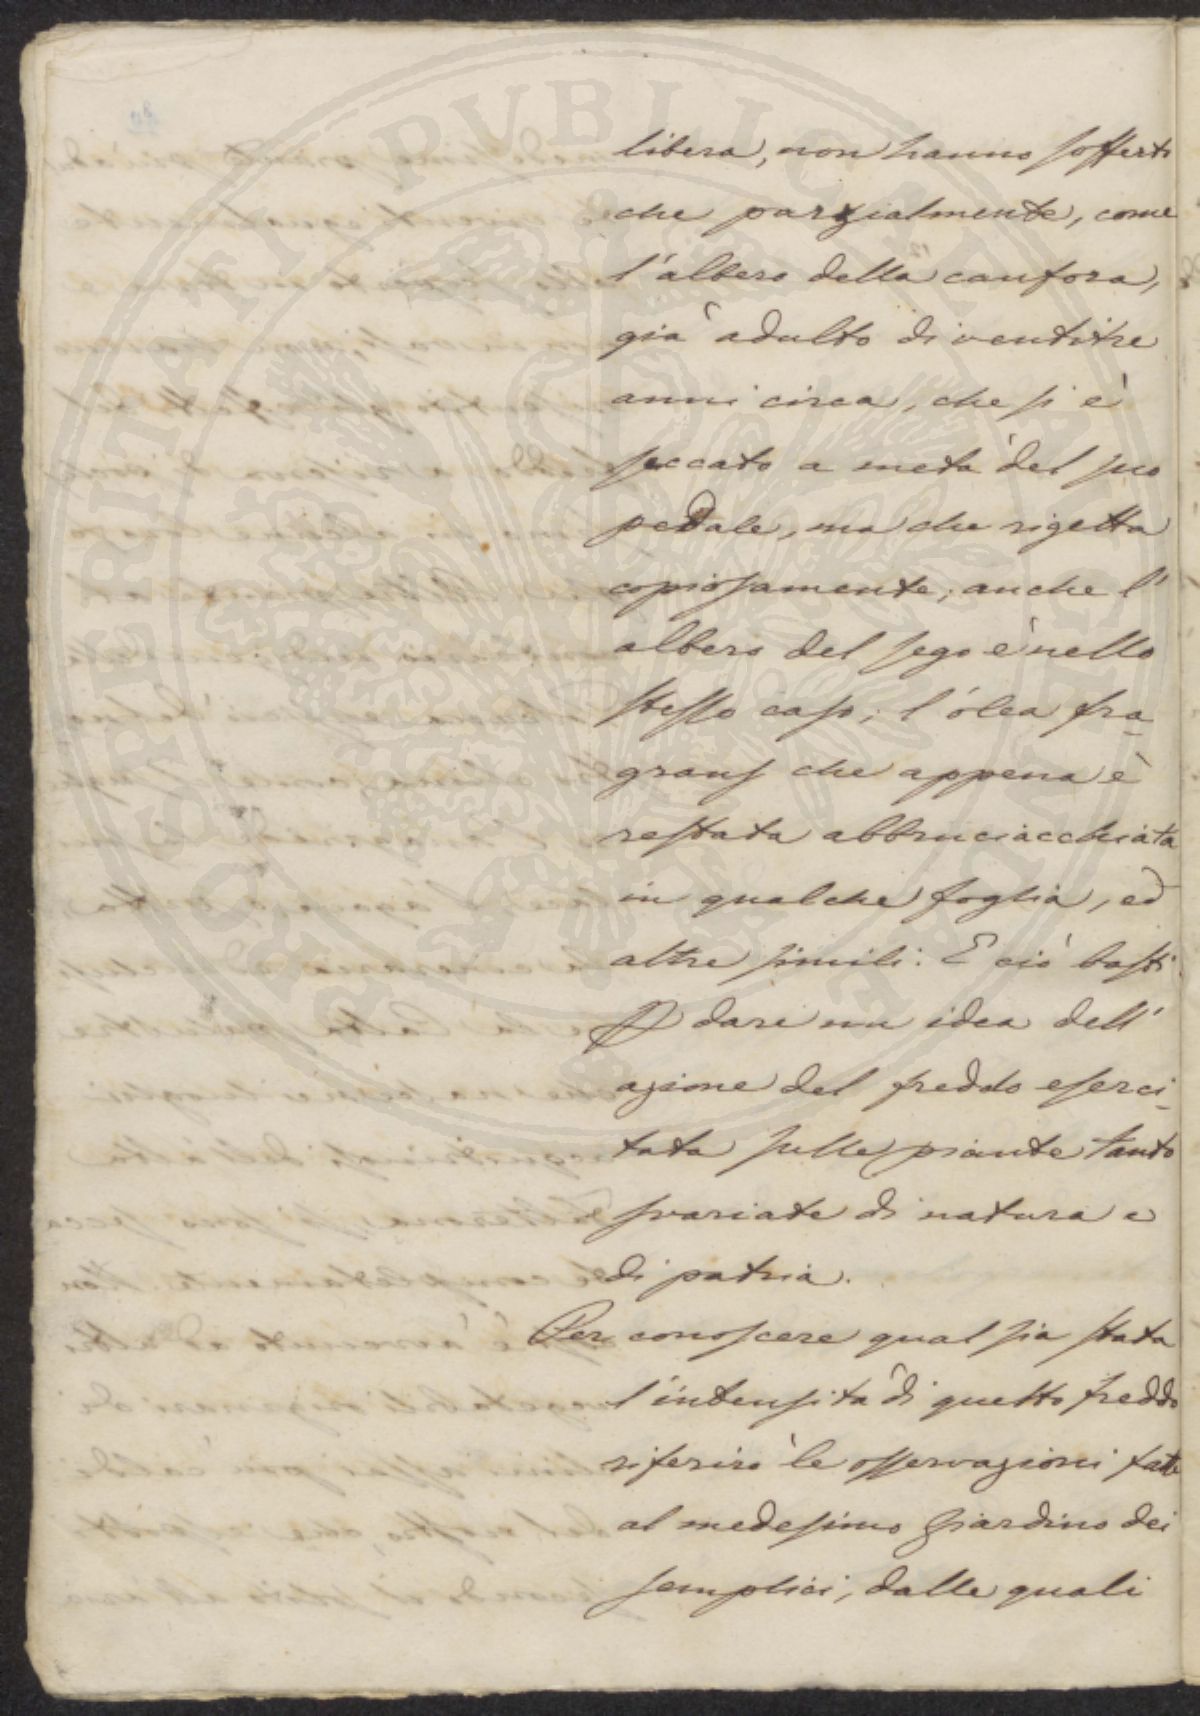 libera, non hanno sofferto
che parzialmente, come
l'albero della canfora,
già adulto di ventitre
anni circa, che si è
seccato a metà del suo
pedale, ma che rigetta
copiosamente; anche l'
albero del sego è nello
stesso caso; l'olea fra-
grans che appena è
restata abbruciacchiata
in qualche foglia, ed
altre simili. E ciò basti
dare un idea dell'
azione del freddo eserci-
tata sulle piante tanto
svariate di natura e
di patria.
Per conoscere qual sia stata
l'intensità di questo freddo
riferirò le osservazioni fatte
al medesimo Giardino dei
semplici, dalle quali